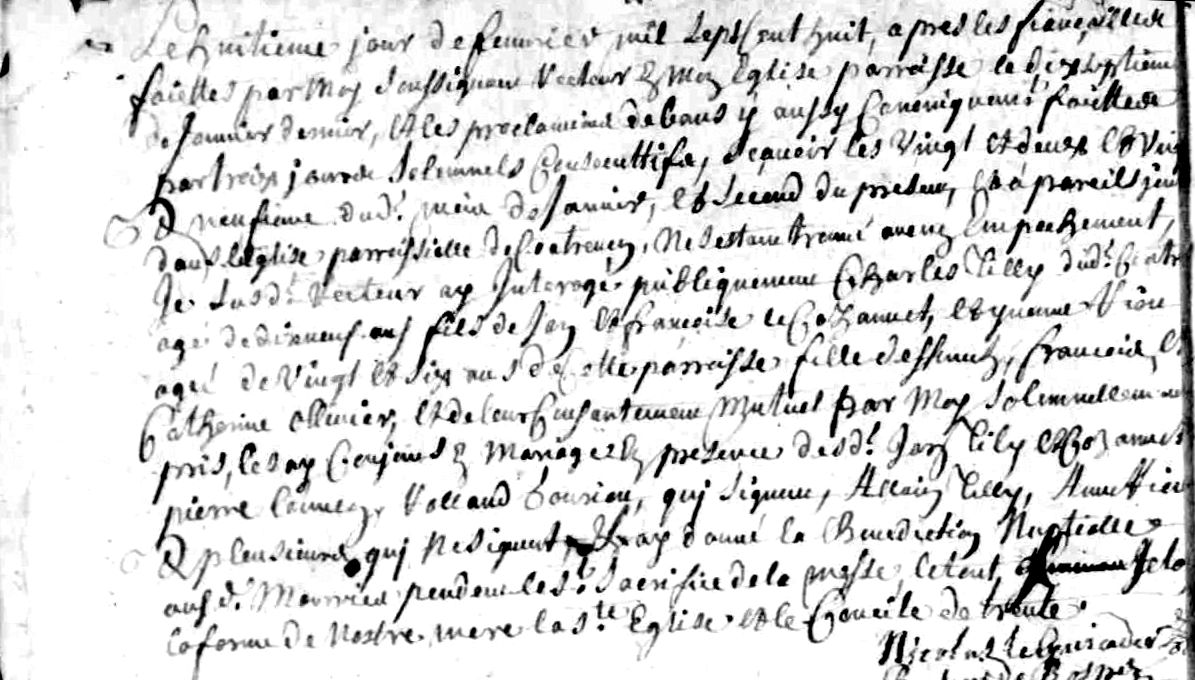 Le huitieme jour de feuvrier mil sept cent huit, apres les fiançailles
faittes par moy soussignant Recteur en mon Eglise parroisse le dix septieme
de Janvier dernier, et les proclamaons de bans y aussy canoniquemt faittes
par trois jours solemnels consecuttifs, sçauoir les vingt et deux et vin
& neufieme dudt mois de Janvier, et second du present, et à pareils jour
dans l'eglise parroissialle de , ne s'estant trouué aucun Empechement,
Je susdt Recteur ay Interogé publiquement Charles Lilly dudt
agé de dix neuf ans fils de Jan et francoise le Gohannet, et yuonne
agé de vingt et six ans de cette parroisse fille deffunts francois et
Catherine ollivier, et de leur consantement mutuel par moy solemnellement
pris, les ay conjoints en mariage en presence desdt Jan Lily et Gohannet
pierre , Rolland , qui signent, Allain Lilly, Anne
& plusieurs qui ne signent, & ay donné la Benediction Nuptialle
ausdt Marriés pendant le st sacrifice de la messe, le tout selo
la forme de Nostre mere la ste Eglise et le Concile de trente.
Nicolas